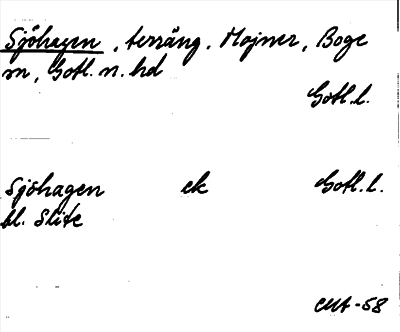 Sjöhagen, terräng. Mojner, Boge
sn, Gotl. n. hd
Gotl.l.
Sjöhagen ek Gotl.l.
bl. Slite
-58